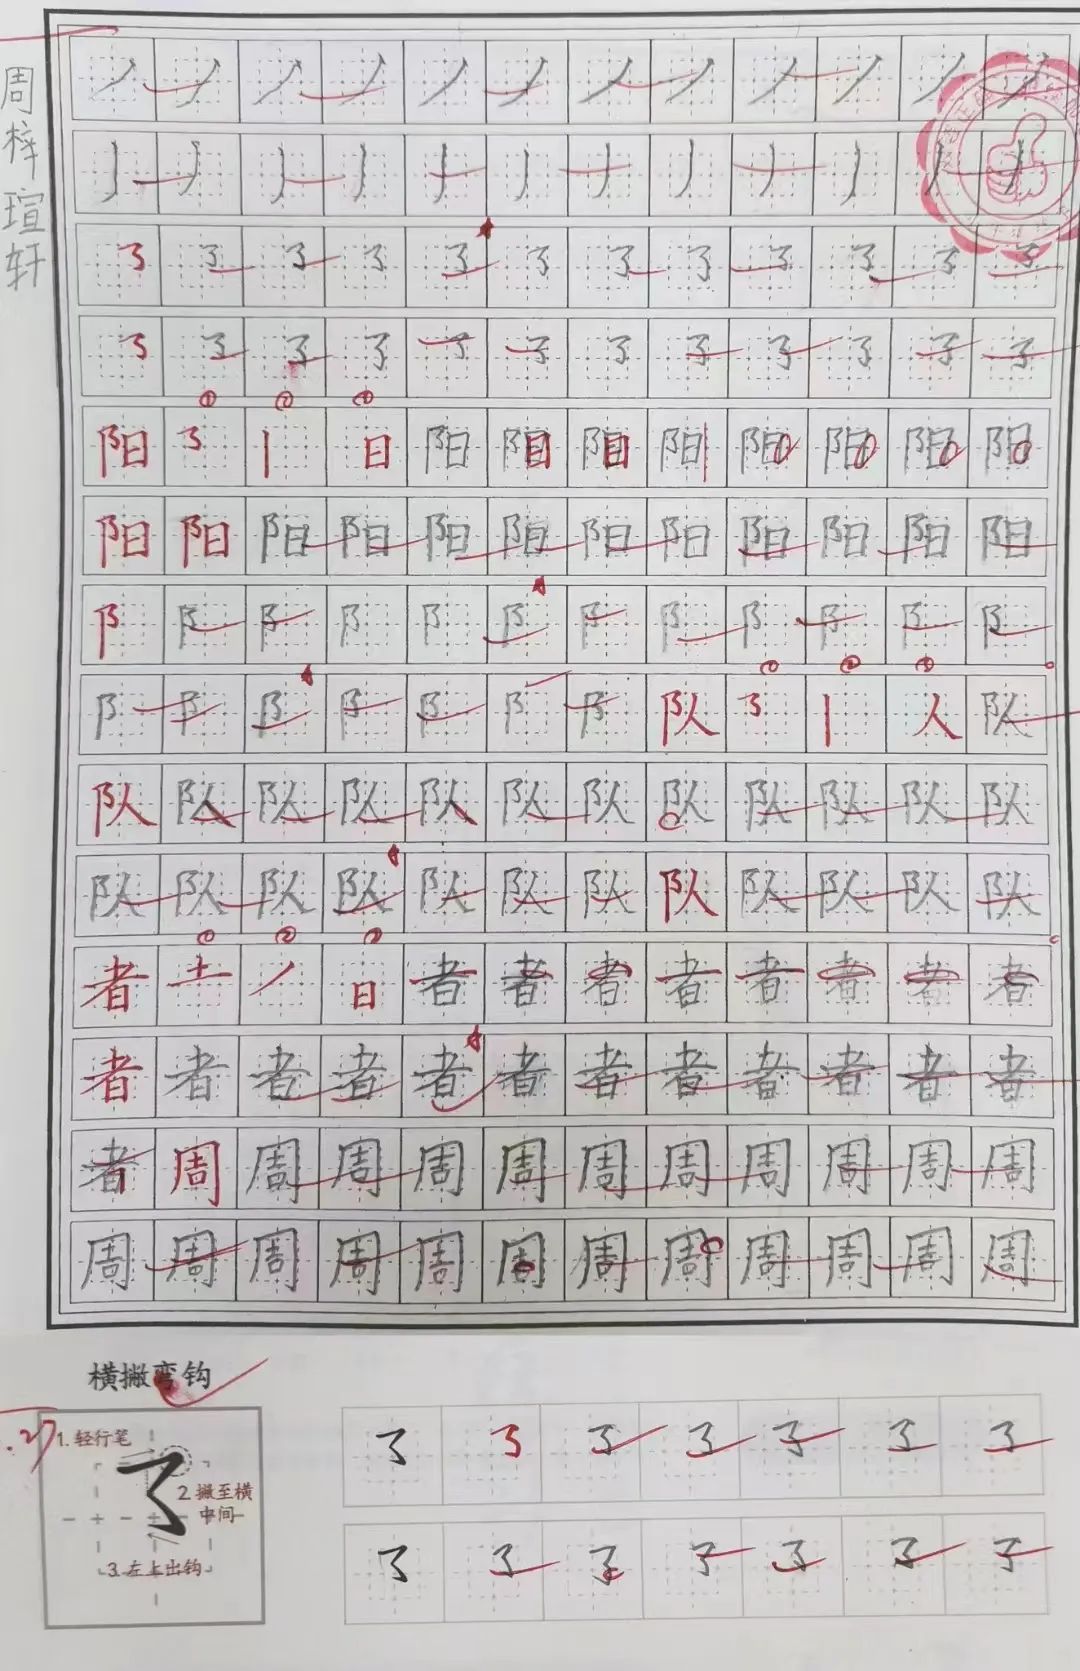 周梓瑄轩
丿 丿 丿 丿 丿 丿 丿 丿 丿 丿 丿
丿 丿 丿 丿 丿 丿 丿 丿 丿 丿 丿 丿
阳 丨 日 阳 阳 阳 阳 阳 阳 阳 阳
阳 阳 阳 阳 阳 阳 阳 阳 阳 阳 阳 阳
阝 阝 阝 阝 阝 阝 阝 阝 阝 阝 阝 阝
阝 阝 阝 阝 阝 阝 阝 队 丨 人 队
队 队 队 队 队 队 队 队 队 队 队 队
队 队 队 队 队 队 队 队 队 队 队 队
者 土 丿 日 者 者 者 者 者 者 者 者
者 者 者 者 者 者 者 者 者 者 者 者
者 周 周 周 周 周 周 周 周 周 周 周
周 周 周 周 周 周 周 周 周 周 周 周
横撇弯钩
1.轻行笔
2.撇至横
中间
3.左上出钩